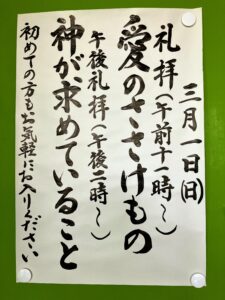 三月一日(日)
礼拝(午前十一時~)
愛のささげもの
午後礼拝(午後二時~)
神が求めていること
初めての方もお気軽にお入りください